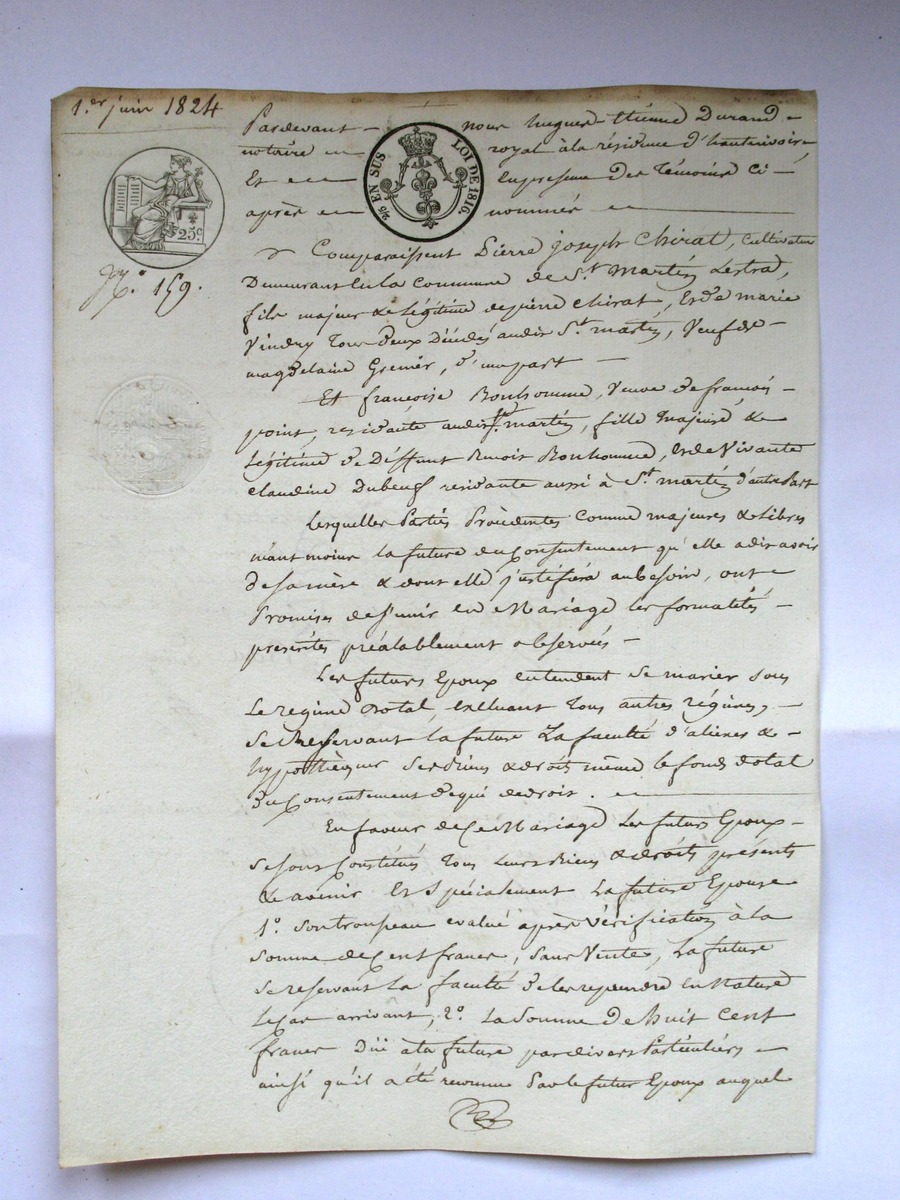 1.er juin 1824
Pardevant nous hugues-Etienne Durand
notaire royal à la résidence d'hauterivoire
Et en presence des Témoins ci-
après nommés
2/5 EN SUS LOI DE 1816.
25c.
N.o 159.
Comparaissent Pierre joseph Chirat, cultivateur
Demeurant en la commune de St. Martin Lestra,
fils majeur & Légitime de pierre Chirat, Et de marie
Vindry Tous deux Décédés audit St. martin, Veuf de
magdelaine Grenier, d'une part
Et francoise Bonhomme, Veuve de francois
point, residante audit St. martin, fille Majeure &
Légitime de Déffunt Benoit Bonhomme, Et de Vivante
Claudine Dubeuf residante aussi à St. martin d'autre Part
Lesquelles Parties Procédentes comme majeures & Libres
néantmoins la future du Consentement qu'elle a dit avoir
de sa mère & dont elle justifiera au besoin, ont
Promises de s'unir en Mariage les formalités
prescrites préalablement observées
Les futurs Epoux entendent se marier sous
Le regime dotal, excluant Tous autres régimes,
se Reservant la future La faculté d'aliéner &
hypothèquer ses Biens & droits même le fonds dotal
du Consentement de qui de droit.
En faveur de Ce Mariage Les futurs Epoux
se sont Constitués Tous Leurs Biens & droits présents
& avenir Et Spécialement La future Epouse
1.o son trousseau evalué après Vérification à la
somme de Cent francs, sans Vente, La future
se reservant La faculté de les reprendre en Nature
Le Cas arrivant, 2.o La Somme De huit Cent
francs Dûe à la future par divers Particuliers
ainsi qu'il a été reconnu Par le futur Epoux auquel